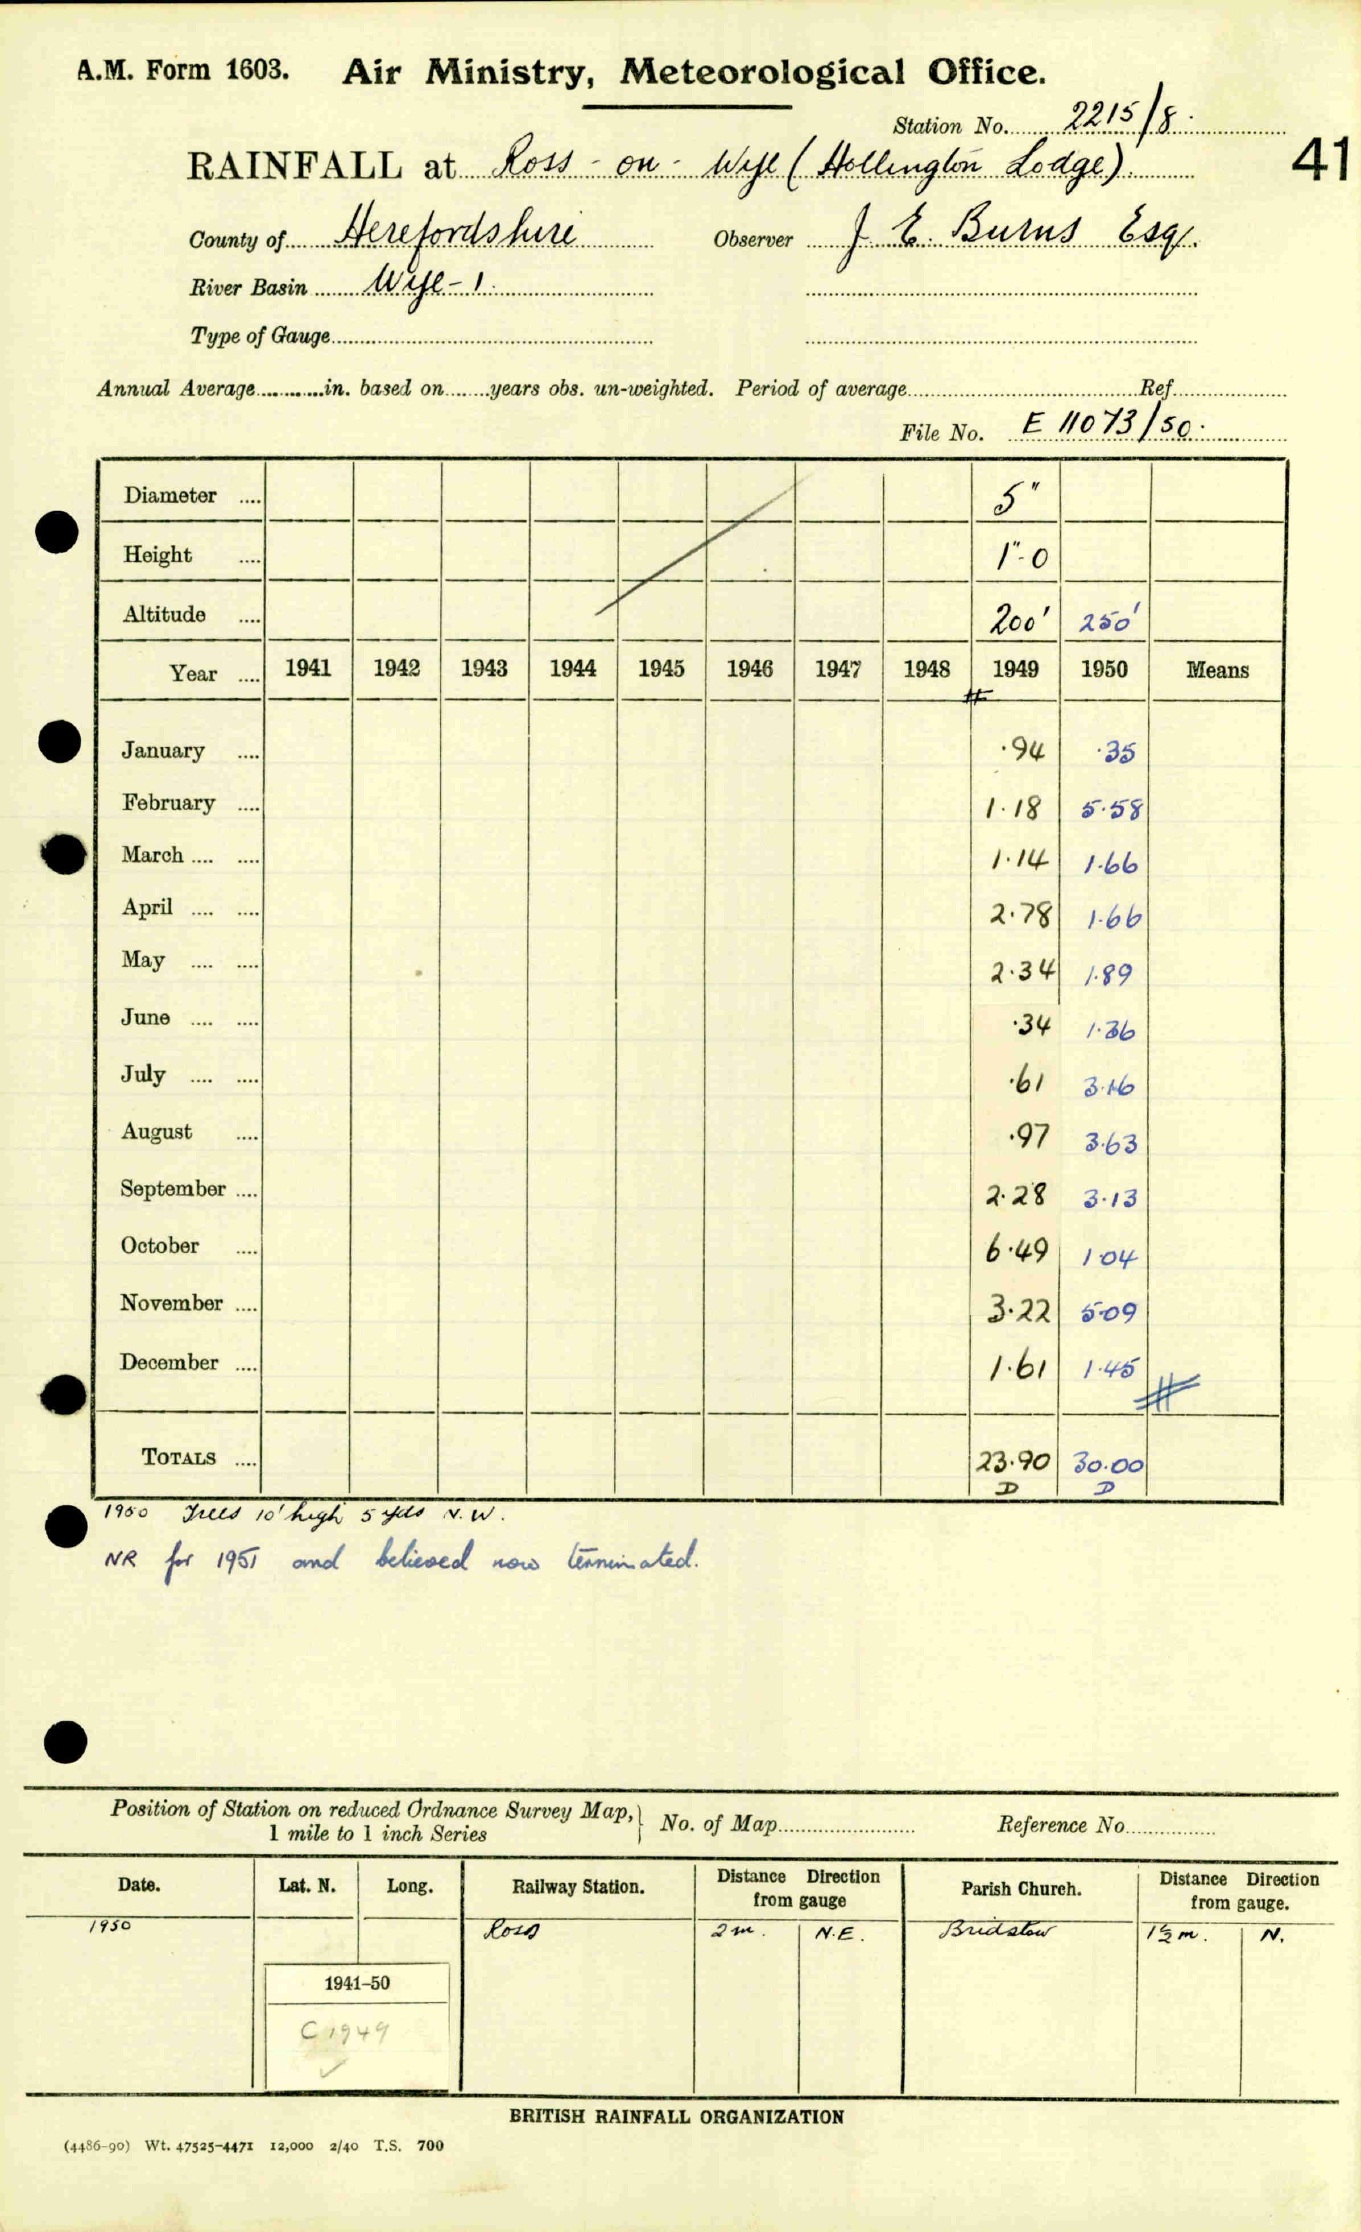 A.M. Form 1603. Air Ministry, Meteorological Office.
Station No. 2215/8.
41
RAINFALL at Ross-on-Wye (Hollington Lodge).
County of Herefordshire Observer J. E. Burns Esq.
River Basin Wye-1.
Type of Gauge
Annual Average in. based on years obs. un-weighted. Period of average Ref.
File No. E 11073/50.
Diameter 5"
Height 1"-0
Altitude 200' 250'
Year 1941 1942 1943 1944 1945 1946 1947 1948 1949 1950 Means
January .94 .35
February 1.18 5.58
March 1.14 1.66
April 2.78 1.66
May 2.34 1.89
June .34 1.36
July .61 3.16
August .97 3.63
September 2.28 3.13
October 6.49 1.04
November 3.22 5.09
December 1.61 1.45
TOTALS 23.90 30.00
D D
1950 Trees 10' high 5 yds N.W.
NR for 1951 and believed now terminated.
Position of Station on reduced Ordnance Survey Map,
1 mile to 1 inch Series } No. of Map Reference No.
Date. Lat. N. Long. Railway Station. Distance Direction from gauge Parish Church. Distance Direction from gauge.
1950 Ross 2 m. N.E. Bridstow 1½ m. N.
1941-50
C 1949
BRITISH RAINFALL ORGANIZATION
(4486-90) Wt. 47525-4471 12,000 2/40 T.S. 700